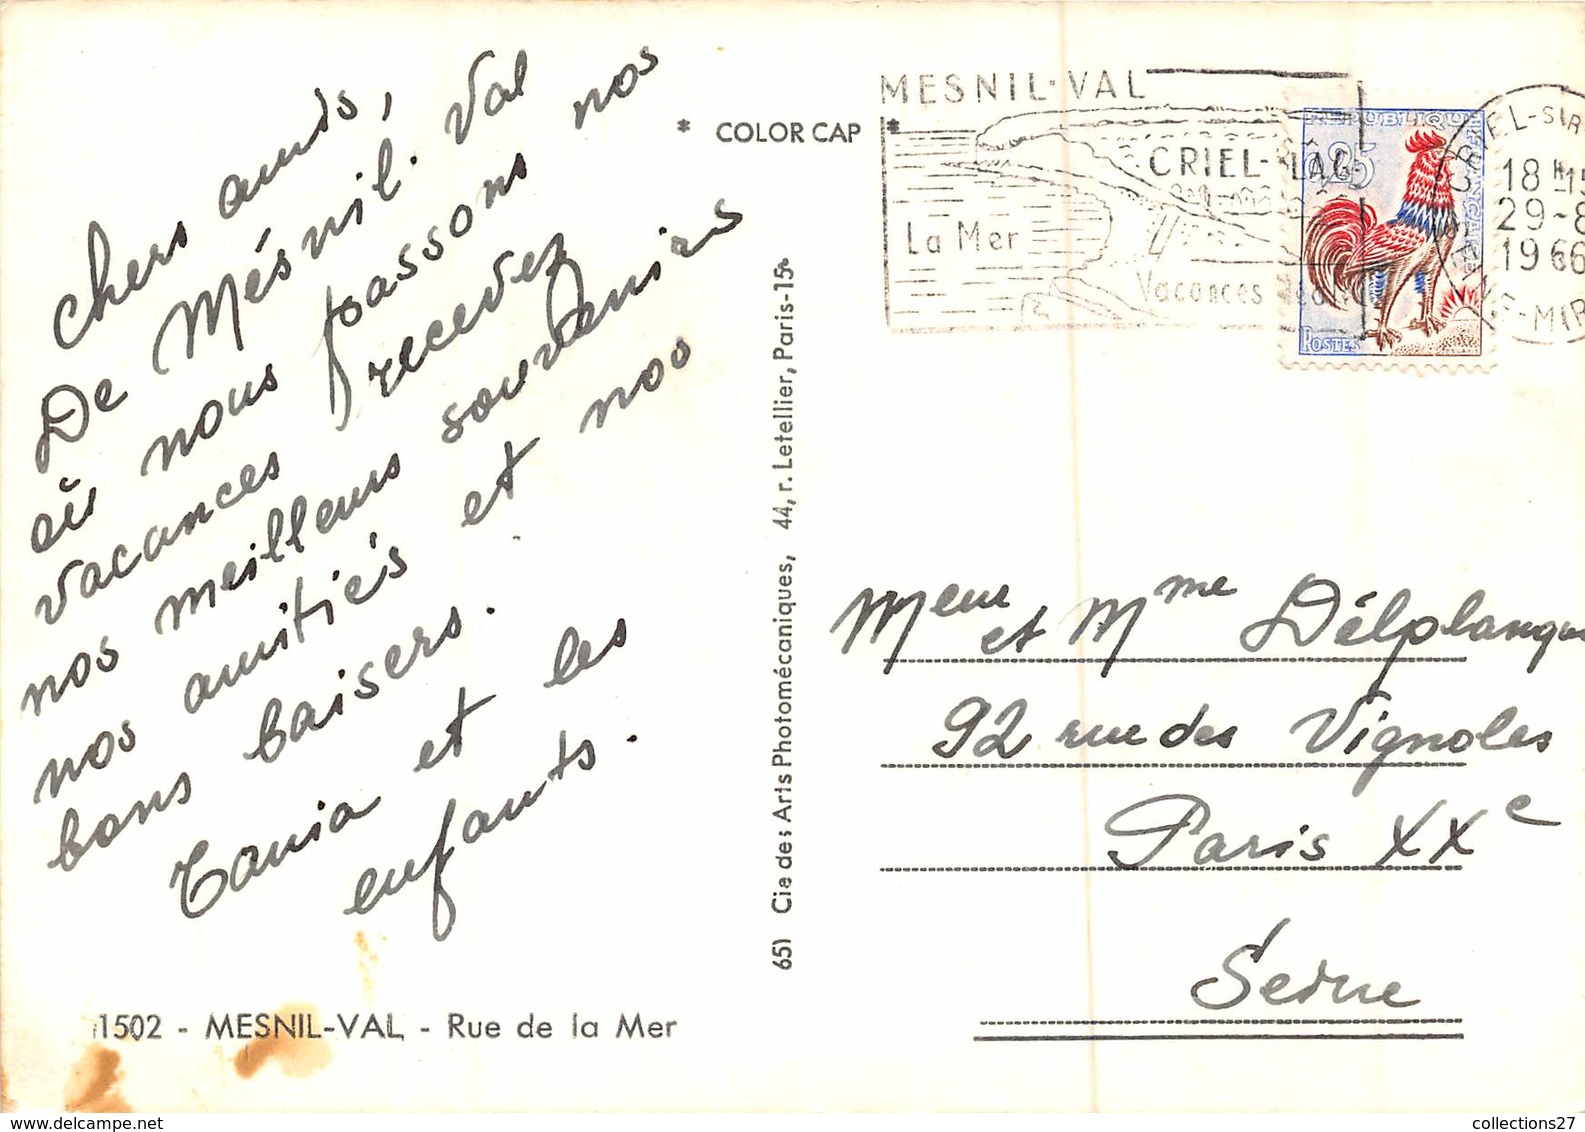 chers amis,
De Mésnil. Val
où nous passons nos
vacances recevez
nos meilleurs souvenirs
nos amitiés et nos
bons baisers.
Tania et les
enfants.
11502 - MESNIL-VAL - Rue de la Mer
* COLOR CAP *
65) Cie des Arts Photomécaniques, 44, r. Letellier, Paris-15e
MESNIL-VAL
CRIEL-PLAGE
La Mer
Vacances
REPUBLIQUE
FRANÇAISE
0,25
POSTES
CRIEL-SUR
18 H 15
29-8
1966
Meur et Mme Délplanque
92 rue des Vignoles
Paris XXe
Seine
collections27